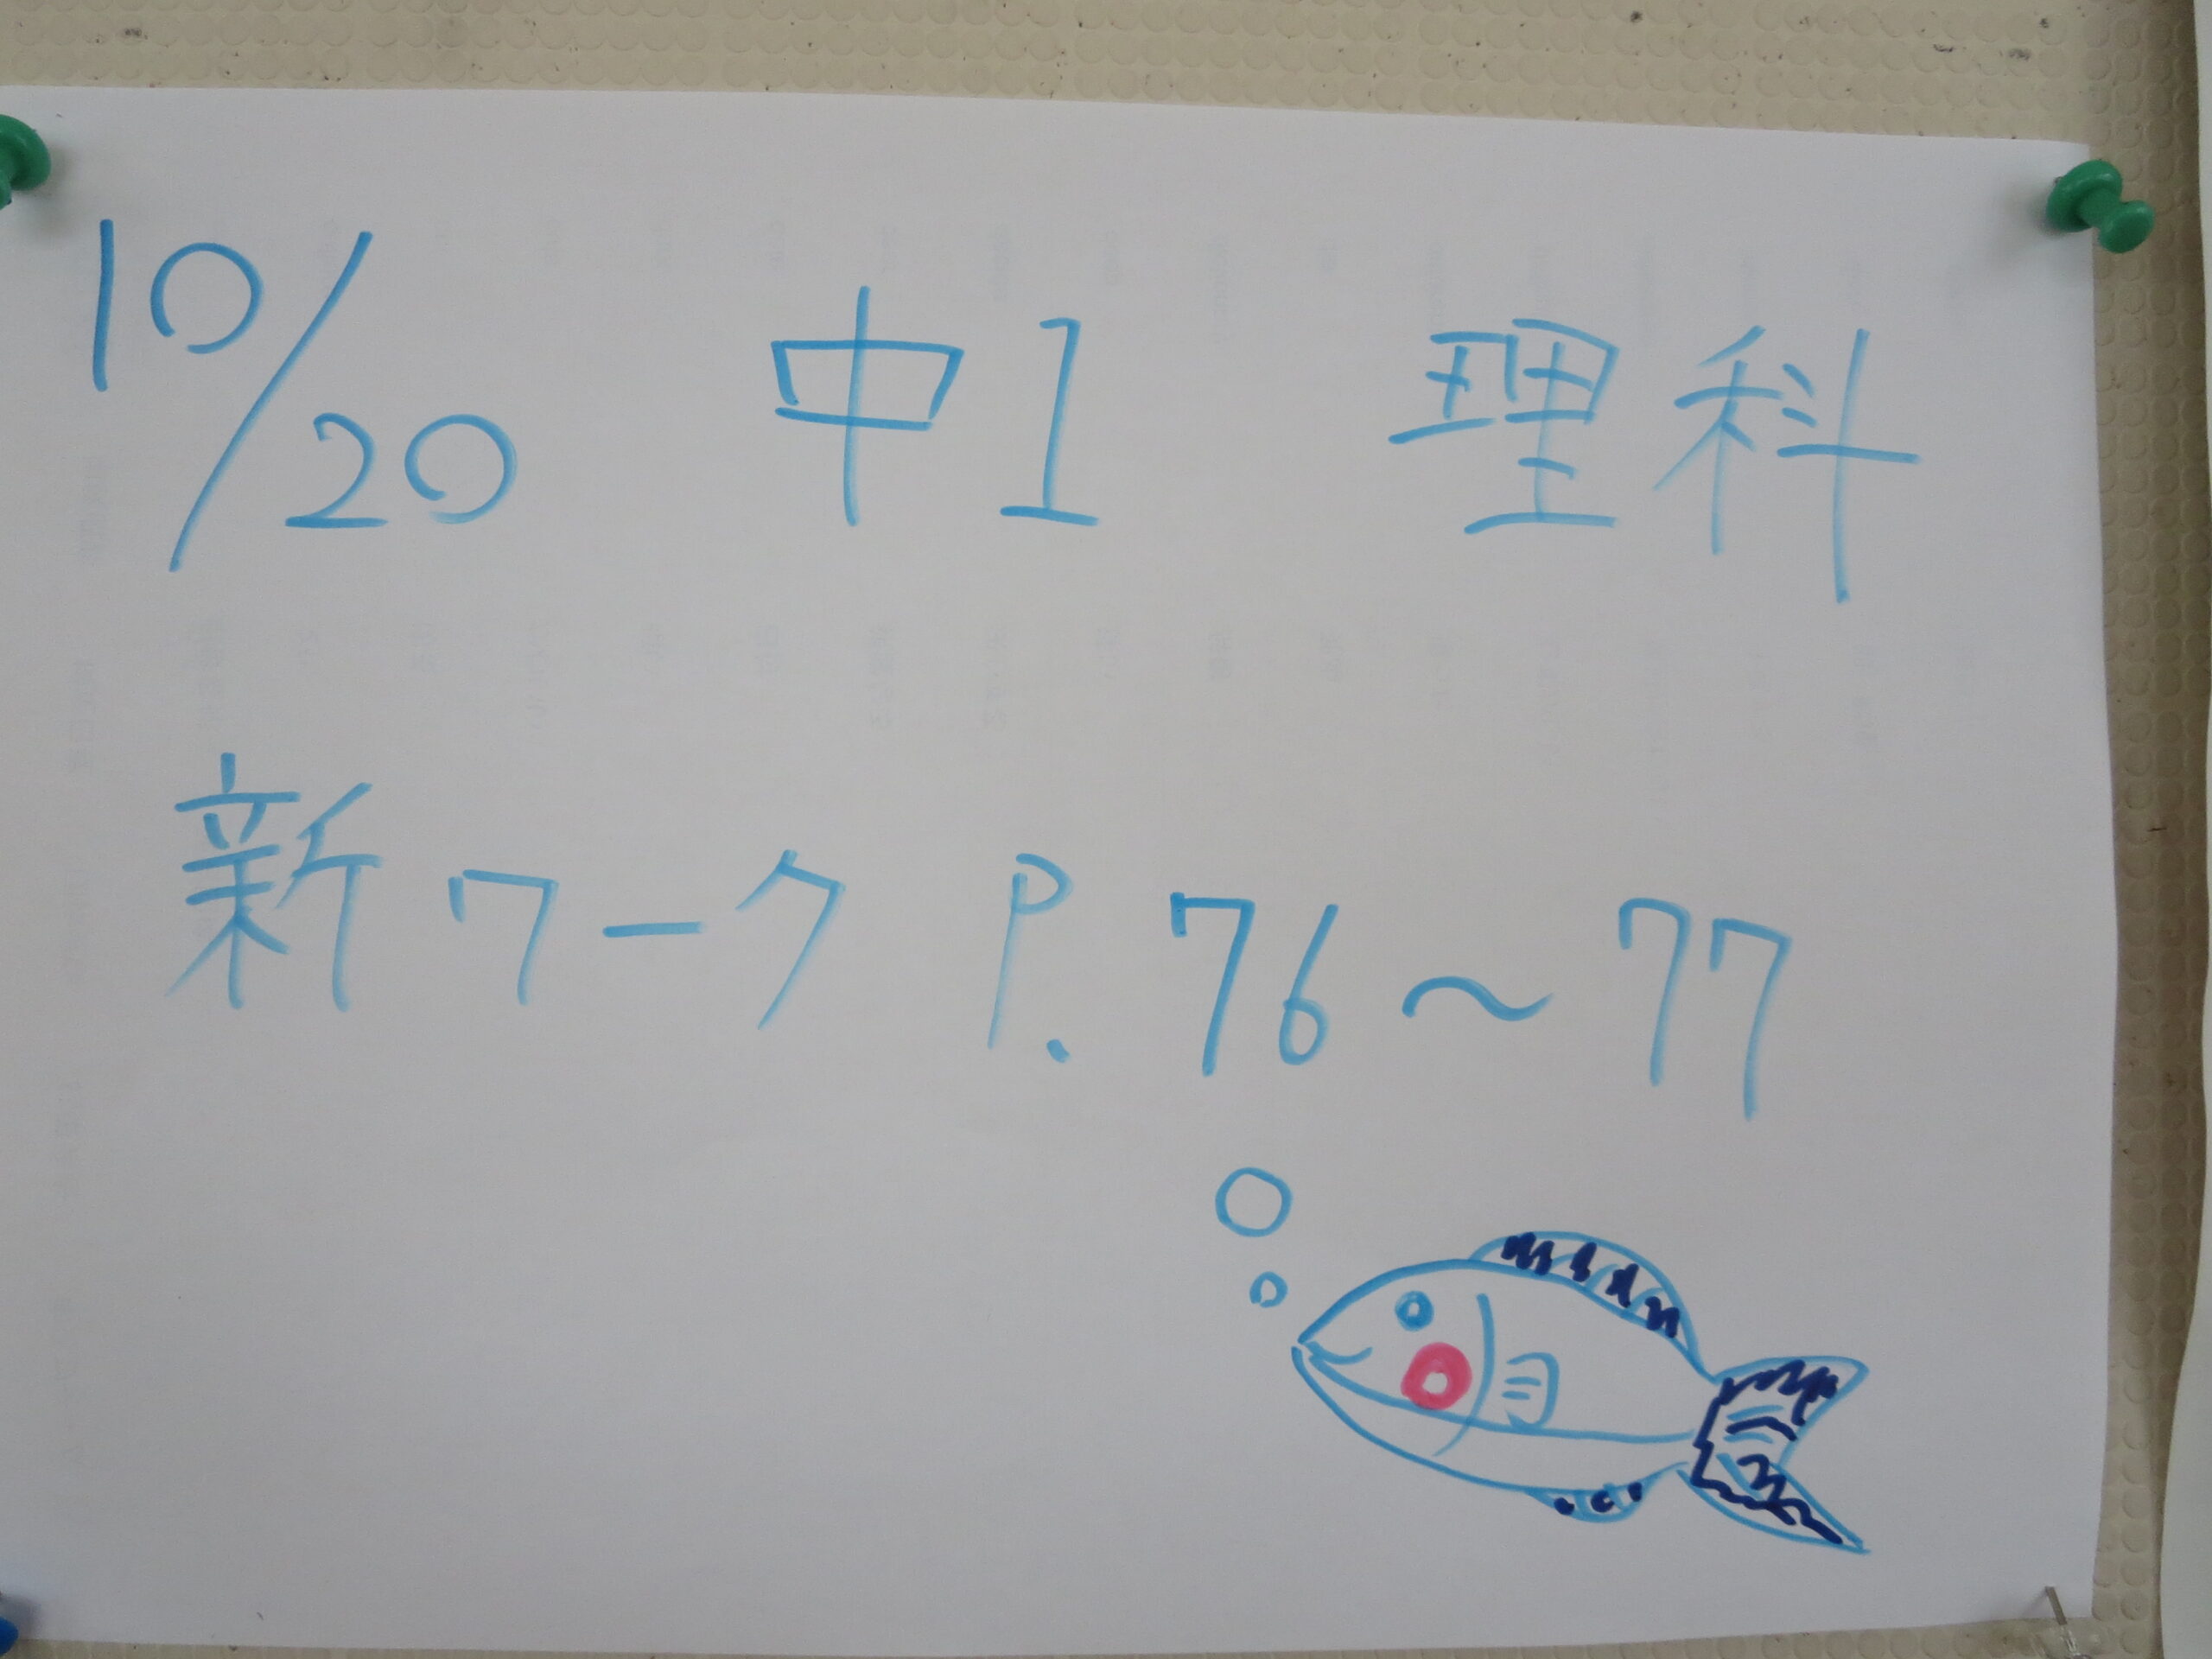 10/20 中1 理科
新ワーク P.76～77